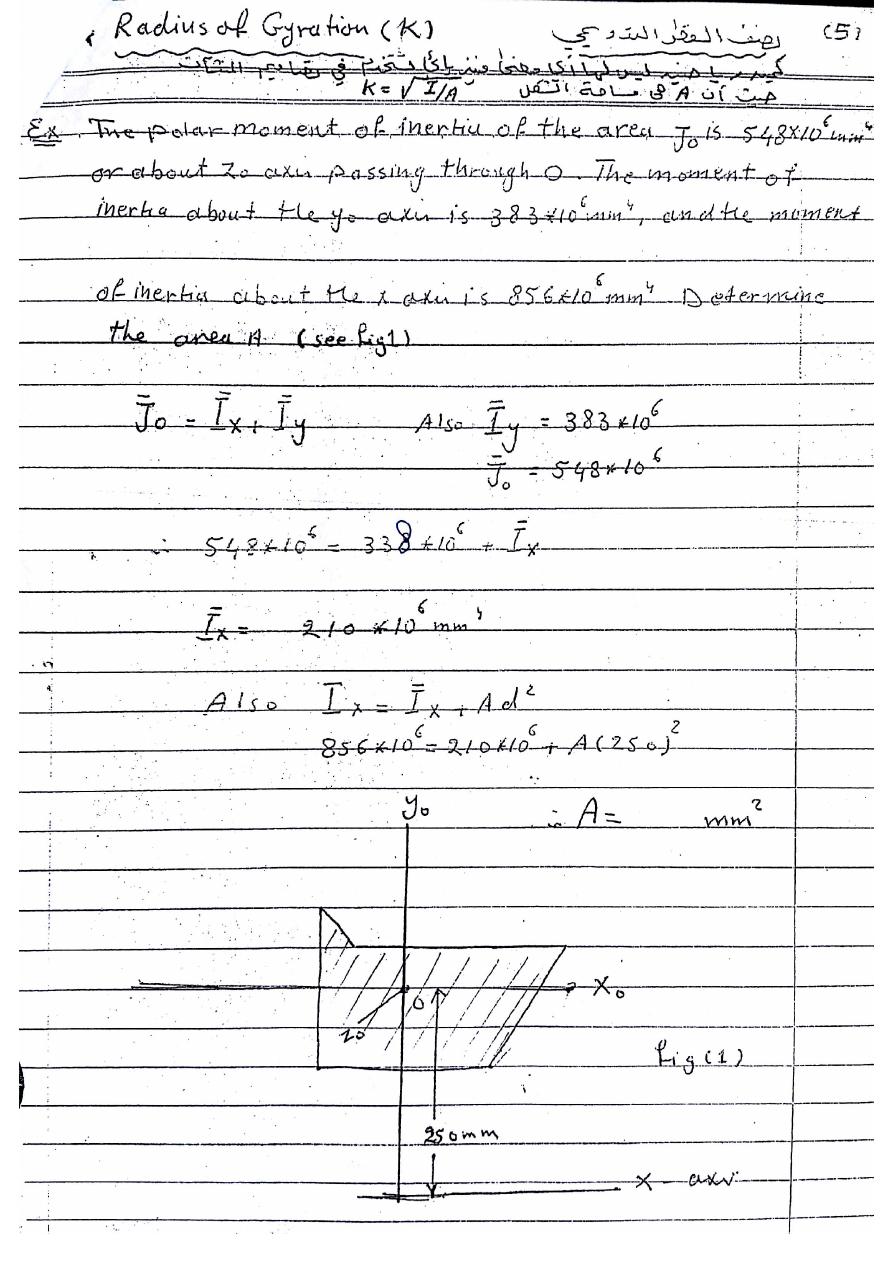 Radius of Gyration (K) (5)
K = √I/A حيث أن A هي مساحة الشكل
Ex. The polar moment of inertia of the area J₀ is 548*10⁶ mm⁴
or about Zo axis passing through O. The moment of
inertia about the yo axis is 383*10⁶ mm⁴, and the moment
of inertia about the x axis is 856*10⁶ mm⁴ Determine
the area A (see fig1)
J̿o = I̿x + I̿y Also I̿y = 383*10⁶
J̿o = 548*10⁶
∴ 548*10⁶ = 338*10⁶ + I̿x
I̿x = 210*10⁶ mm⁴
Also Ix = I̿x + Ad²
856*10⁶ = 210*10⁶ + A(250)²
yo ∴ A = mm²
Xo
O
Zo
fig(1)
250mm
x - axis